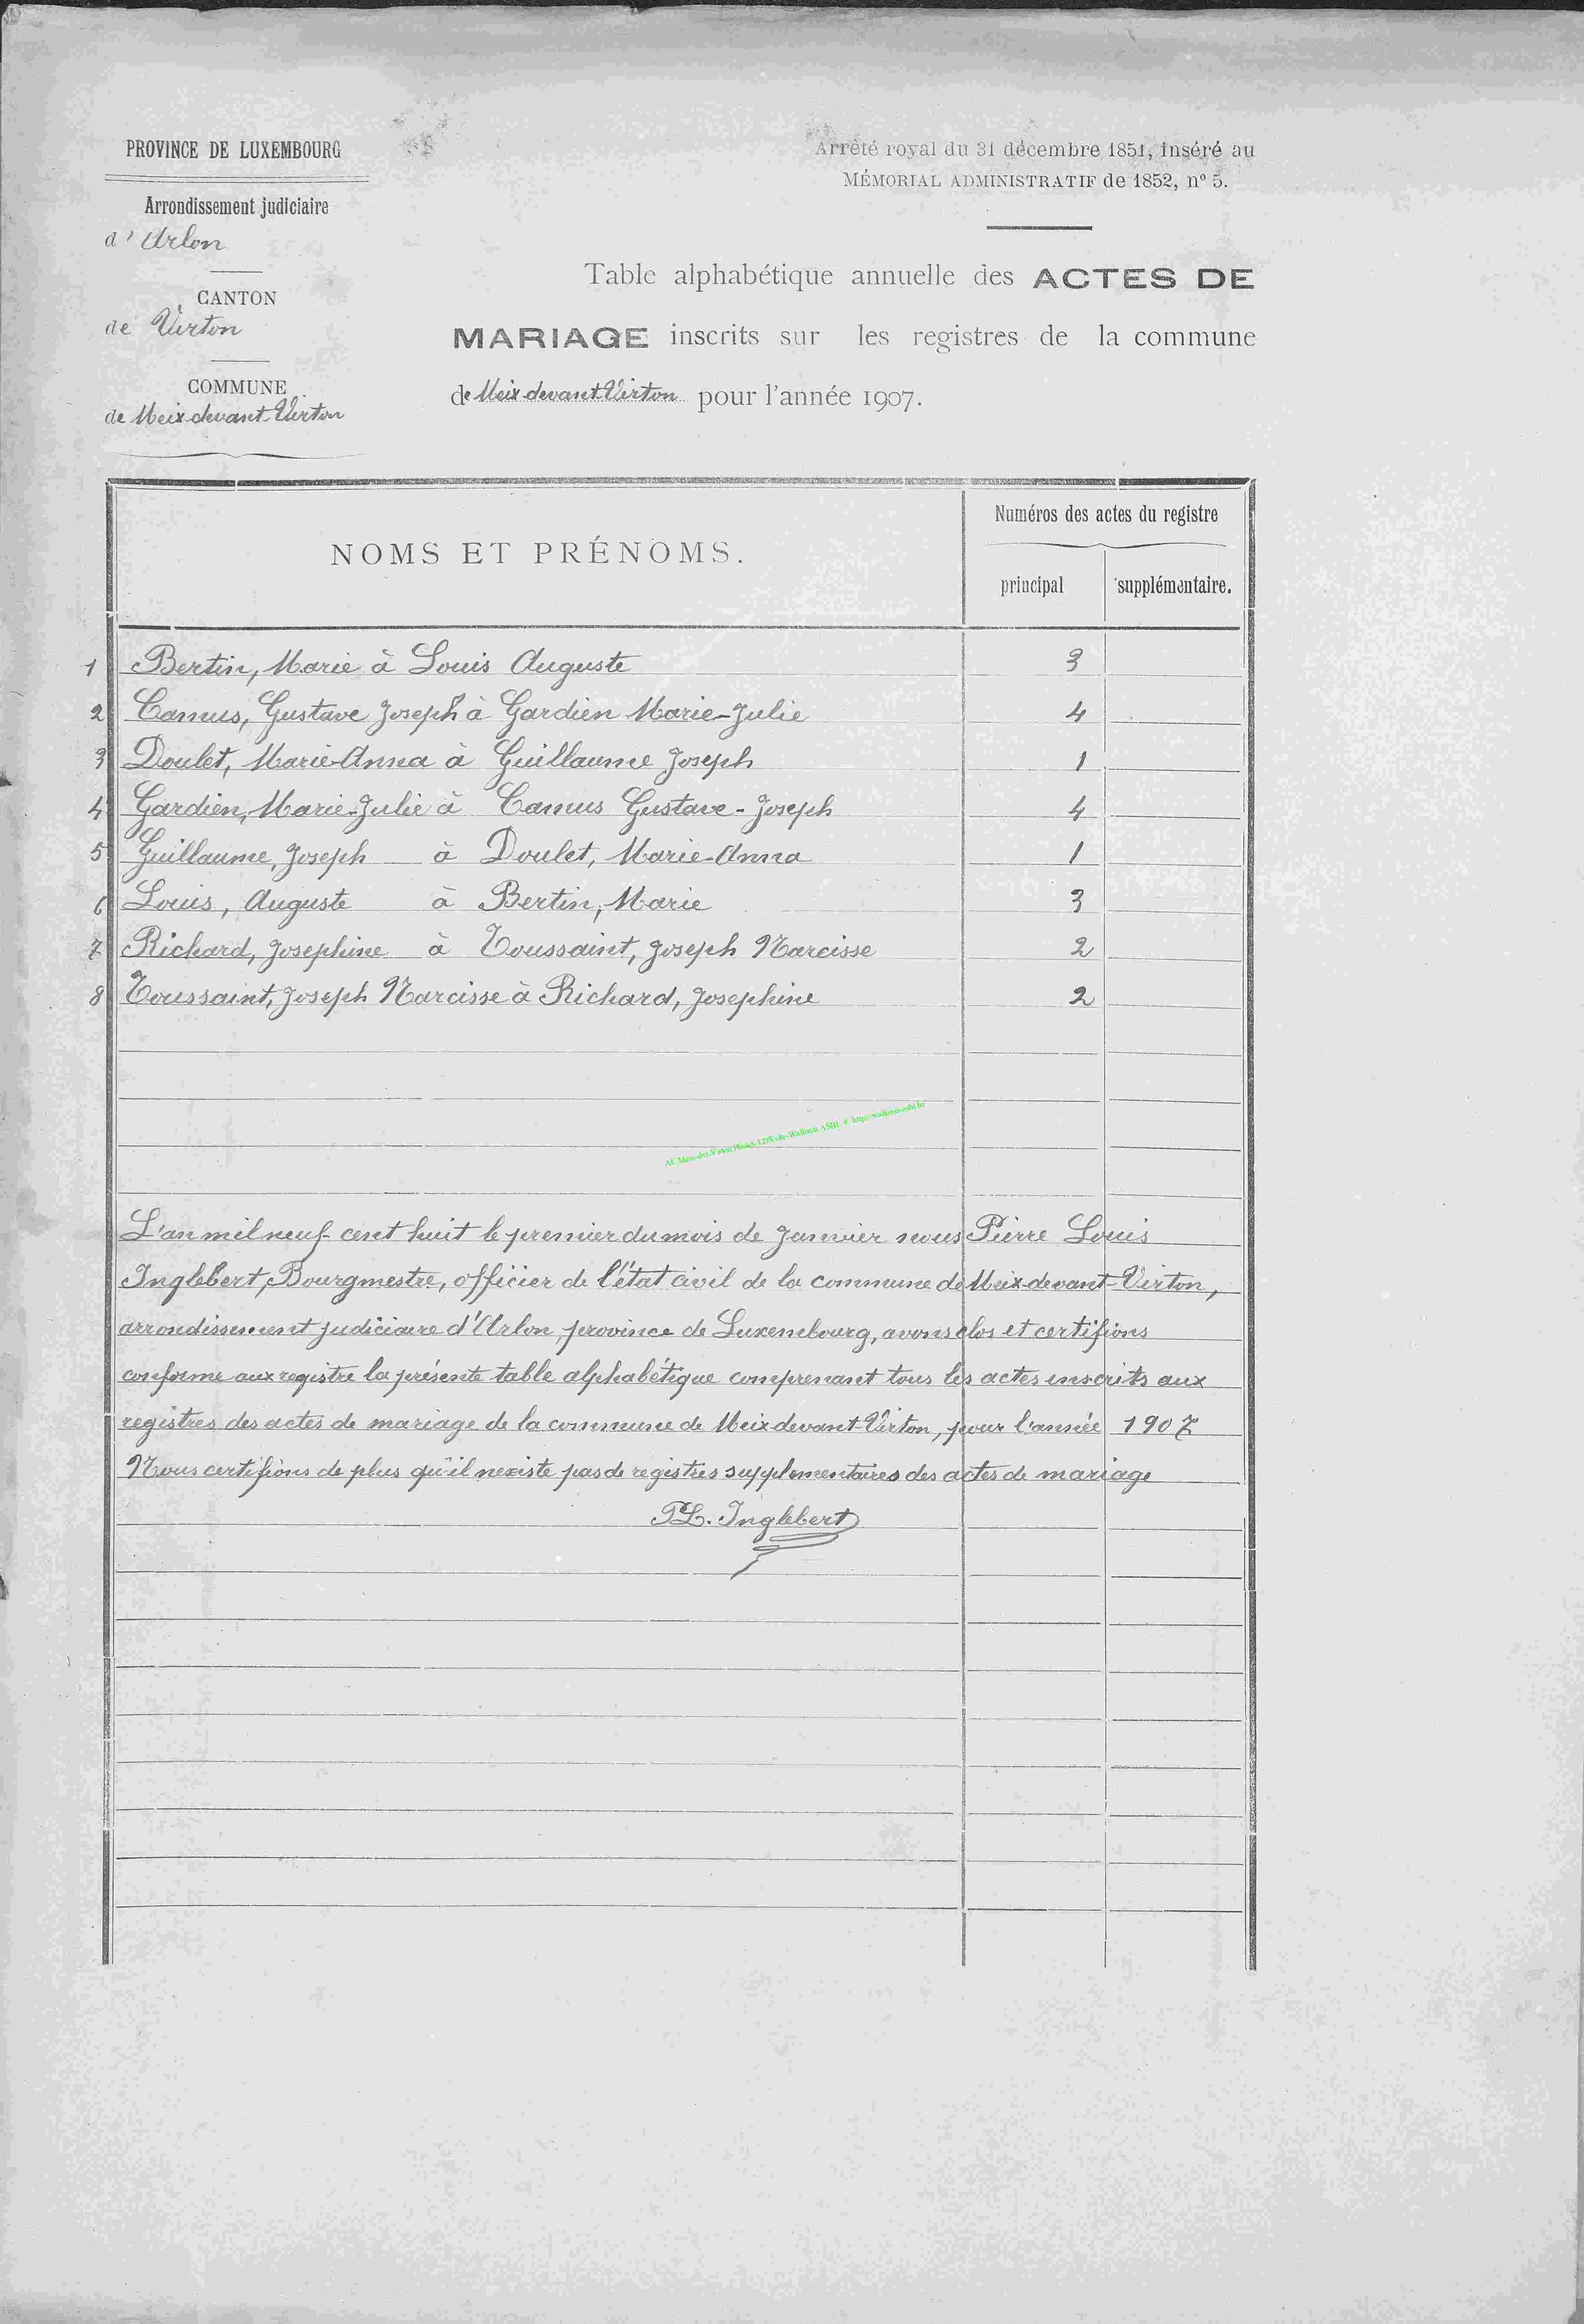 PROVINCE DE LUXEMBOURG
Arrondissement judiciaire
d'Arlon
CANTON
de Virton
COMMUNE
de Meix-devant-Virton
Arrêté royal du 31 décembre 1851, inséré au
MÉMORIAL ADMINISTRATIF de 1852, nº 5.
Table alphabétique annuelle des ACTES DE
MARIAGE inscrits sur les registres de la commune
de Meix-devant-Virton pour l'année 1907.
NOMS ET PRÉNOMS.
Numéros des actes du registre
principal supplémentaire.
1 Bertin, Marie à Louis Auguste 3
2 Camus, Gustave Joseph à Gardien Marie-Julie 4
3 Doulet, Marie-Anna à Guillaume Joseph 1
4 Gardien, Marie-Julie à Camus Gustave-Joseph 4
5 Guillaume, Joseph à Doulet, Marie-Anna 1
6 Louis, Auguste à Bertin, Marie 3
7 Richard, Josephine à Toussaint, Joseph Narcisse 2
8 Toussaint, Joseph Narcisse à Richard, Josephine 2
L'an mil neuf cent huit le premier du mois de Janvier nous Pierre Louis
Inglebert, Bourgmestre, officier de l'état civil de la commune de Meix-devant-Virton,
arrondissement judiciaire d'Arlon, province de Luxembourg, avons clos et certifions
conforme aux registre la présente table alphabétique comprenant tous les actes inscrits aux
registres des actes de mariage de la commune de Meix-devant-Virton, pour l'année 1907
Nous certifions de plus qu'il nexiste pas de registres supplementaires des actes de mariage
PL. Inglebert